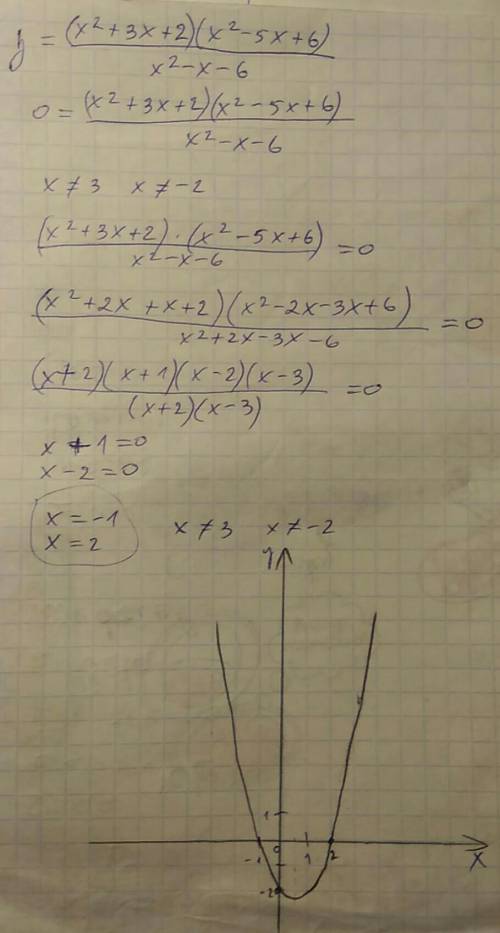 y = (x²+3x+2)(x²-5x+6) / x²-x-6
0 = (x²+3x+2)(x²-5x+6) / x²-x-6
x ≠ 3 x ≠ -2
(x²+3x+2)·(x²-5x+6) / x²-x-6 = 0
(x²+2x+x+2)(x²-2x-3x+6) / x²+2x-3x-6 = 0
(x+2)(x+1)(x-2)(x-3) / (x+2)(x-3) = 0
x+1=0
x-2=0
x=-1
x=2
x ≠ 3 x ≠ -2
y
1
-1 0 1 2 x
-2